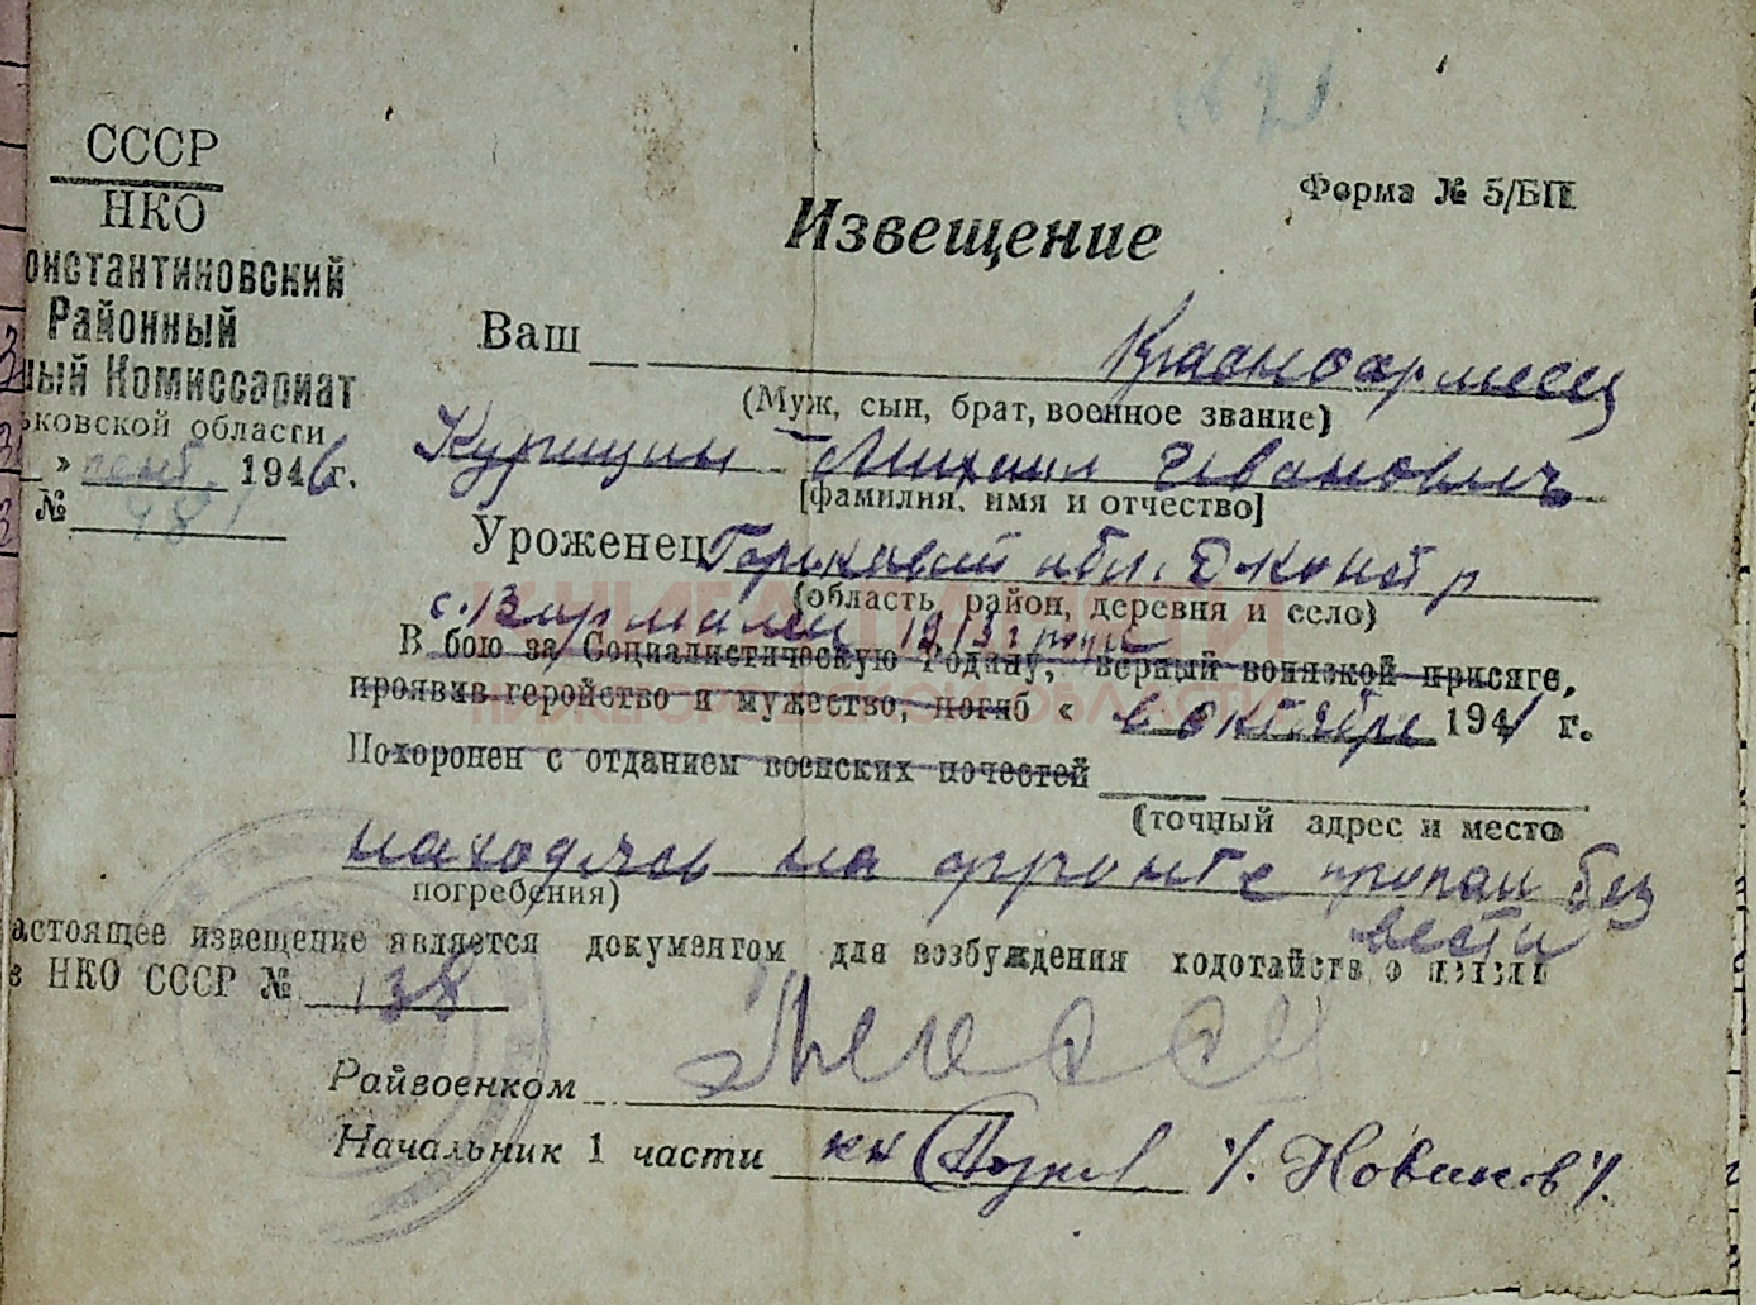 СССР
НКО
онстантиновский
Районный
ный Комиссариат
ьковской области
» 1946 г.
№ 481
Форма № 5/БП
Извещение
Ваш Красноармеец
(Муж, сын, брат, военное звание)
Курицын Михаил Иванович
[фамилия, имя и отчество]
Уроженец Горьковской обл. Д Конст р
(область, район, деревня и село)
с. 1913 г рожд
В бою за Социалистическую Родину, верный воинской присяге,
проявив геройство и мужество, погиб « в октябре 1941 г.
Похоронен с отданием воинских почестей
(точный адрес и место
находясь на фронте пропал без
погребения)
вести
астоящее извещение является документом для возбуждения ходотайств о пенсии
НКО СССР № 138
Райвоенком
Начальник 1 части кн /. Новиков /.
КНИГА ПАМЯТИ
НИЖЕГОРОДСКОЙ ОБЛАСТИ